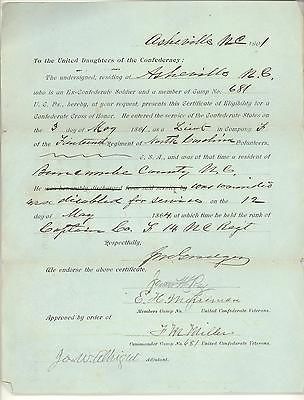 Asheville NC 1901
To the United Daughters of the Confederacy:
The undersigned, residing at Asheville N.C.
who is an Ex-Confederate Soldier and a member of Camp No. 681
U. C. Vs., hereby, at your request, presents this Certificate of Eligibility for a
Confederate Cross of Honor. He entered the service of the Confederate States on
the 3 day of May 1861, as a Lieut in Company F
of Fourteenth Regiment of North Carolina Volunteers,
C. S. A., and was at that time a resident of
Buncombe County N.C.
He was honorably discharged from said service by was wounded
and disabled for service on the 12
day of May 1864, at which time he held the rank of
Captain Co. F 14 NC Regt
Respectfully,
We endorse the above certificate.
Members Camp No. United Confederate Veterans.
Approved by order of
Commander Camp No. 681 United Confederate Veterans.
Adjutant.